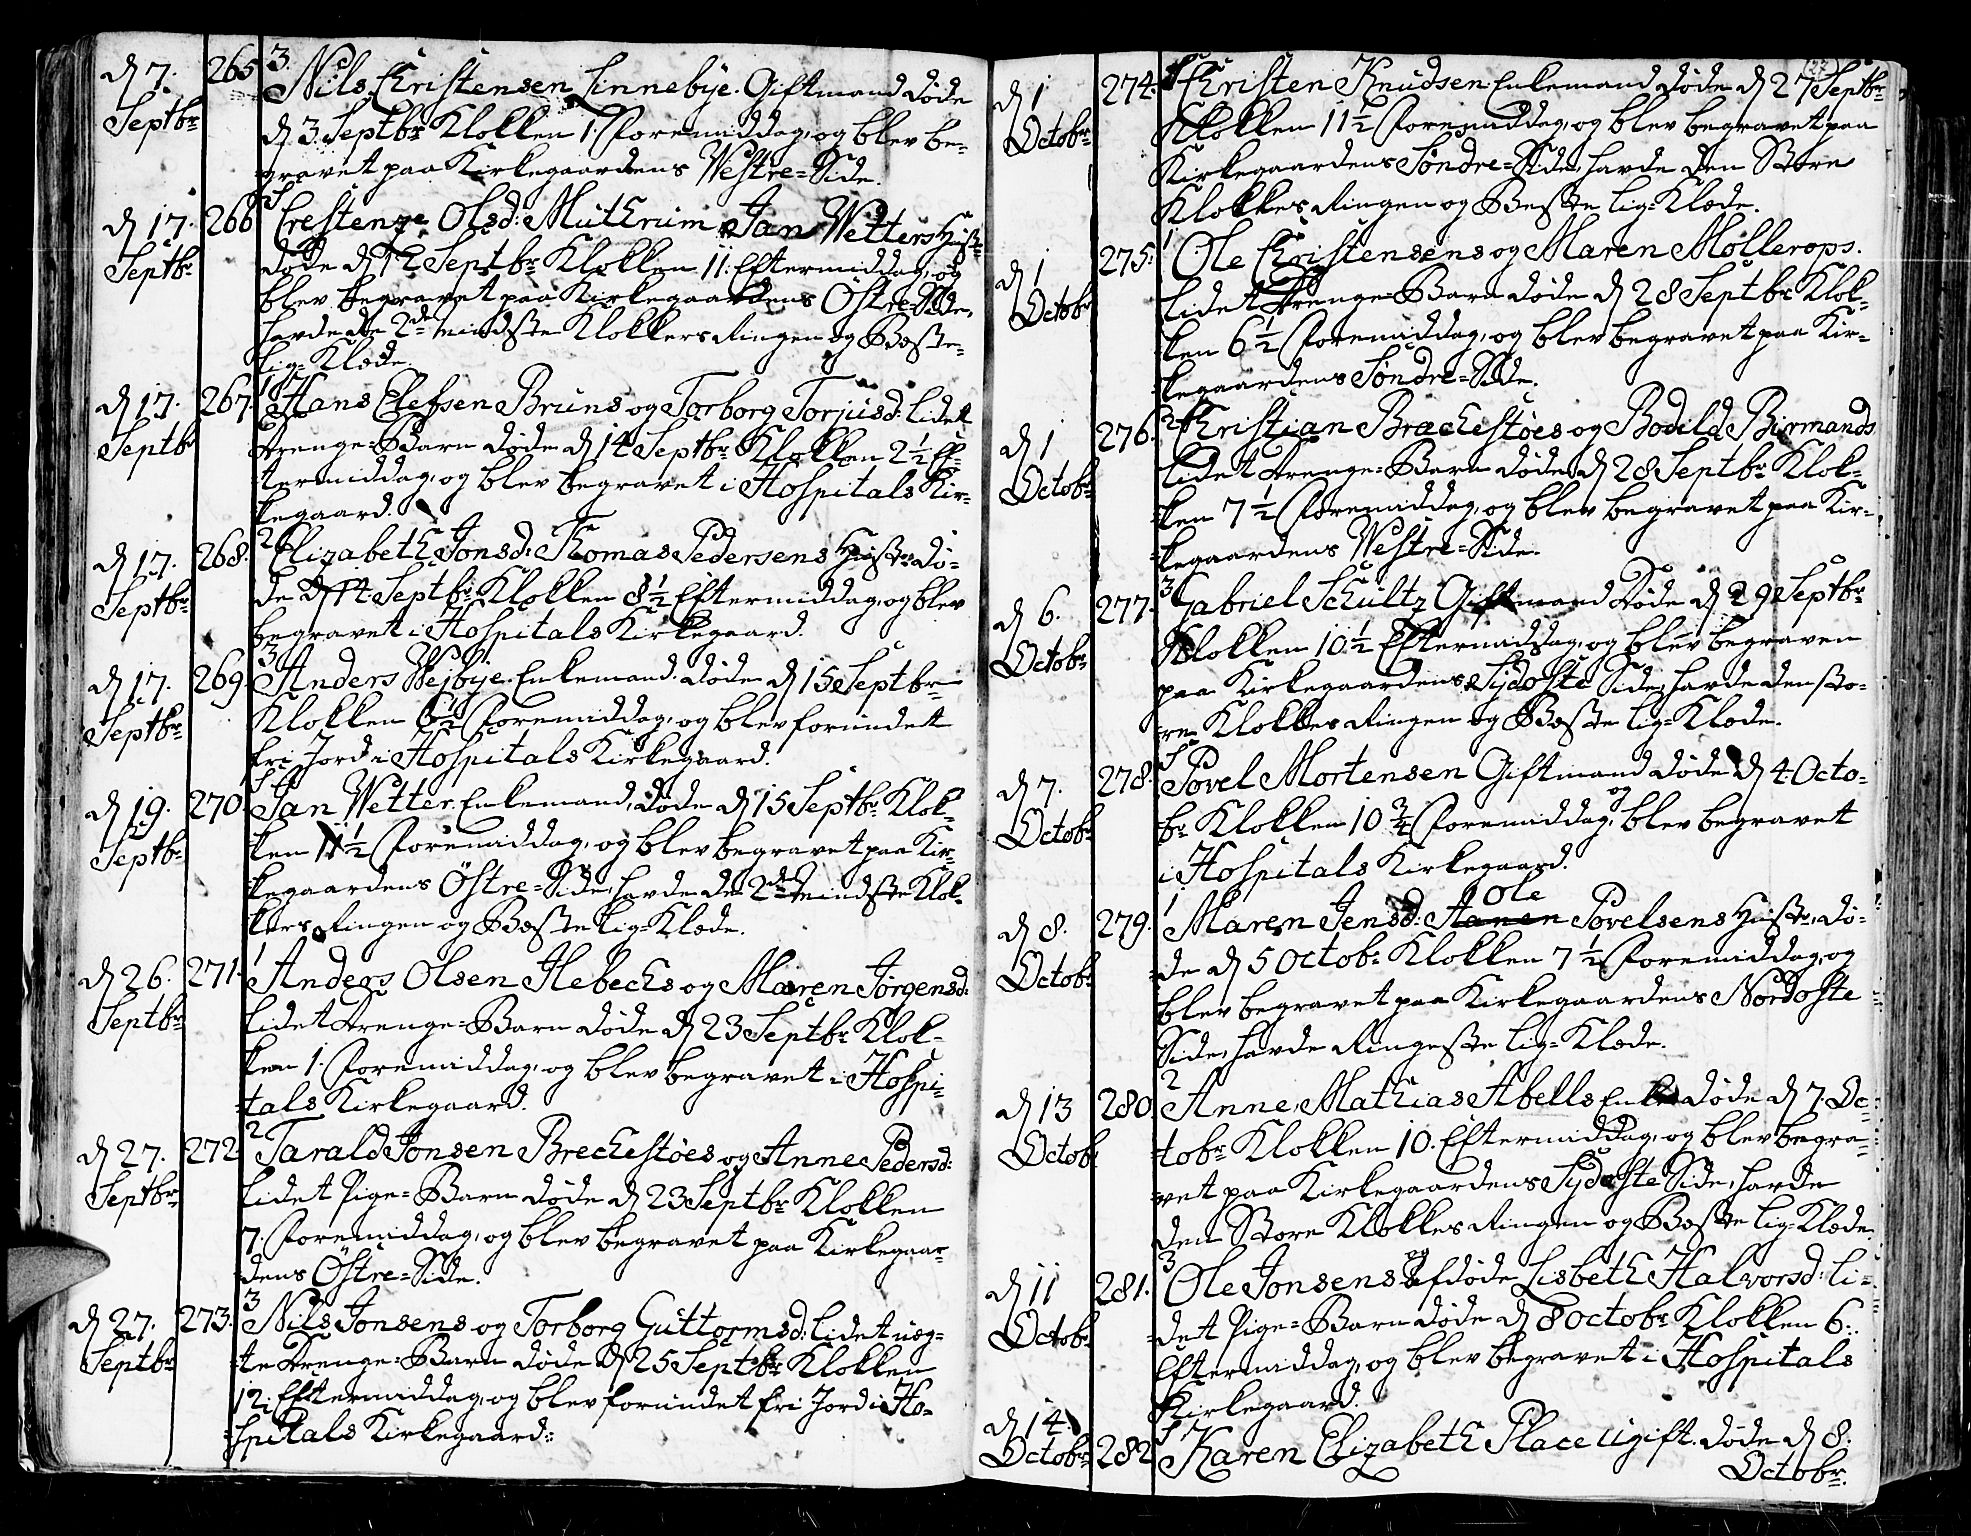 d 7. Septbr 265 3. Nils Christensen Linnebye. Giftmand døde
d 3. Septbr Klokken 1. Foremiddag, og blev be-
gravet paa Kirkegaardens Westre-Side.
d 17. Septbr 266 1 Crestenze Olsd: Muthrim Jan Wetters Hustr:
døde d 12 Septbr Klokken 11. Eftermiddag, og
blev begravet paa Kirkegaardens Østre-Side,
havde de 2de mindste Klokkers Ringen og Beste
Lig-Klæde.
d 17. Septbr 267. 1 Hans Elefsen Bruns og Torborg Torjusd: lidet
drenge-Barn døde d 14 Septbr Klokken 2 1/2 Ef-
termiddag, og blev begravet i Hospitals Kir-
kegaard.
d 17. Septbr 268. 2 Elizabeth Jonsd: Thomas Pedersens Hustr: dø-
de d 14 Septbr Klokken 8 1/2 Eftermiddag, og blev
begravet i Hospitals Kirkegaard.
d 17. Septbr 269 3 Anders Wejbye Enkemand. døde d 15 Septbr
Klokken 6 1/2 Foremiddag, og blev forundet
fri Jord i Hospitals Kirkegaard.
d 19. Septbr 270 1 Jan Wetter Enkemand, døde d 15 Septbr Klok-
ken 11 1/2 Foremiddag, og blev begravet paa Kir-
kegaardens Østre-Side, havde de 2de mindste Klok-
kers Ringen og Beste Lig-Klæde.
d 26. Septbr 271. 1 Anders Olsen Hebechs og Maren Jørgensd:
lidet drenge-Barn døde d 23 Septbr Klok-
ken 1. Foremiddag, og blev begravet i Hospi-
tals Kirkegaard.
d 27. Septbr 272. 2 Tarald Jonsen Brechestøes og Anne Pedersd:
lidet Pige-Barn døde d 23 Septbr Klokken
7. Foremiddag, og blev begravet paa Kirkegaar-
dens Østre-Side.
d 27. Septbr 273. 3 Nils Jonsens og Torborg Guttormsd: lidet uæg-
te drenge-Barn døde d 25 Septbr Klokken
12. Eftermiddag, og blev forundet fri Jord i Ho-
spitals Kirkegaard.
d 1 Octobr 274. Christen Knudsen Enkemand døde d 27 Septbr
Klokken 11 1/2 Foremiddag, og blev begravet paa
Kirkegaardens Søndre-Side, havde den Store
Klokkes Ringen og Beste Lig-Klæde.
d 1 Octobr 275. 1 Ole Christensens og Maren Møllerops.
lidet drenge-Barn døde d 28 Septbr Klok-
ken 6 1/2 Foremiddag, og blev begravet paa Kir-
kegaardens Søndre-Side.
d 1 Octobr 276. 2 Christian Brechestøes og Bodild Birmands
lidet drenge-Barn døde d 28 Septbr Klok-
ken 7 1/2 Foremiddag, og blev begravet paa Kir-
kegaardens Westre-Side.
d 6. Octobr 277. 3 Gabriel Schultz Giftmand døde d 29 Septbr
Klokken 10 1/2 Eftermiddag, og blev begraven
paa Kirkegaardens Sydoste Side, havde den sto-
re Klokkes Ringen og Beste Lig-Klæde.
d 7. Octobr 278. 1 Povel Mortensen Giftmand døde d 4 Octo-
br Klokken 10 3/4 Foremiddag, og blev begravet
i Hospitals Kirkegaard.
d 8. Octobr 279. 1 Maren Jensd: Ole Povelsens Hustr: dø-
de d 5 Octobr Klokken 7 1/2 Foremiddag, og
blev begravet paa Kirkegaardens Nordoste
Side, havde Ringeste Lig-Klæde.
d 13 Octobr 280 2 Anne, Mathias Abells Enke døde d 7. Oc-
tobr Klokken 10. Eftermiddag, og blev begra-
vet paa Kirkegaardens Sydoste Side, havde
den Store Klokkes Ringen og Beste Lig-Klæde.
d 11 Octobr 281. 3 Ole Jonsens og afdøde Lisbeth Halvorsd: li-
det Pige-Barn døde d 8 Octobr Klokken 6.
Eftermiddag, og blev begravet i Hospitals
Kirkegaard.
d 14 Octobr 282 1 Karen Elizabeth Place ugift. døde d 8.
Octobr.